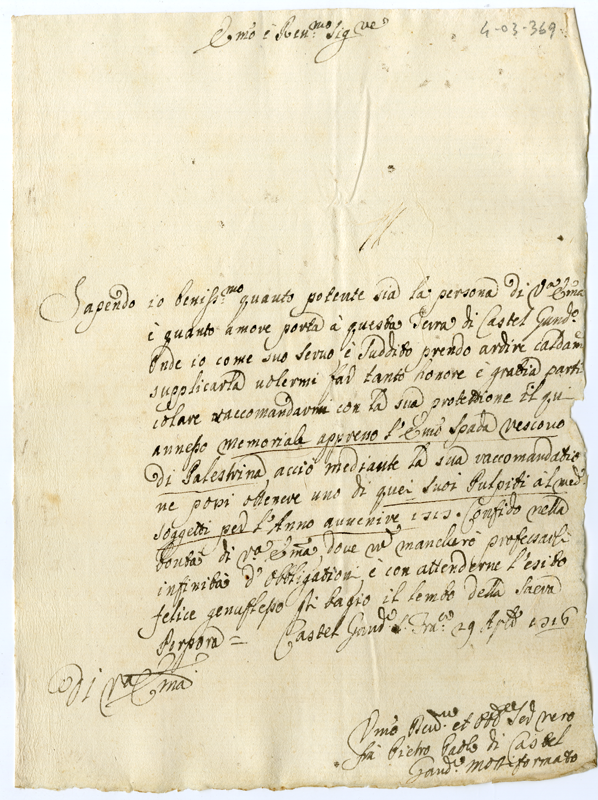 Emo e Reumo Sigre
4-03-369
Sapendo io beniss.mo quanto potente sia la persona di Va Ema
è quanto amore porta à questa Terra di Castel Gandо
Onde io come suo servo è Suddito prendo ardire caldam
supplicarla volermi far tanto honore è gratia parti
colare raccomandarmi con la sua protettione il qui
annesso memoriale appreso l'Emo Spada Vescovo
di Palestrina acciò mediante la sua raccomandatio
ne possi ottenere uno di quei suoi Pulpiti al med
soggetti per l'Anno avvenire 1717. Confido nella
bontà di Va Ema dove nè mancherò professarli
infinità d'obligationi, è con attenderne l'esito
felice genuflesso gli bagio il lembo della Sacra
Porpora = Castel Gando 29 Aple 1716
Di Va Ema
Umo et Servero
frà Pietro Paolo di Castel
Gando